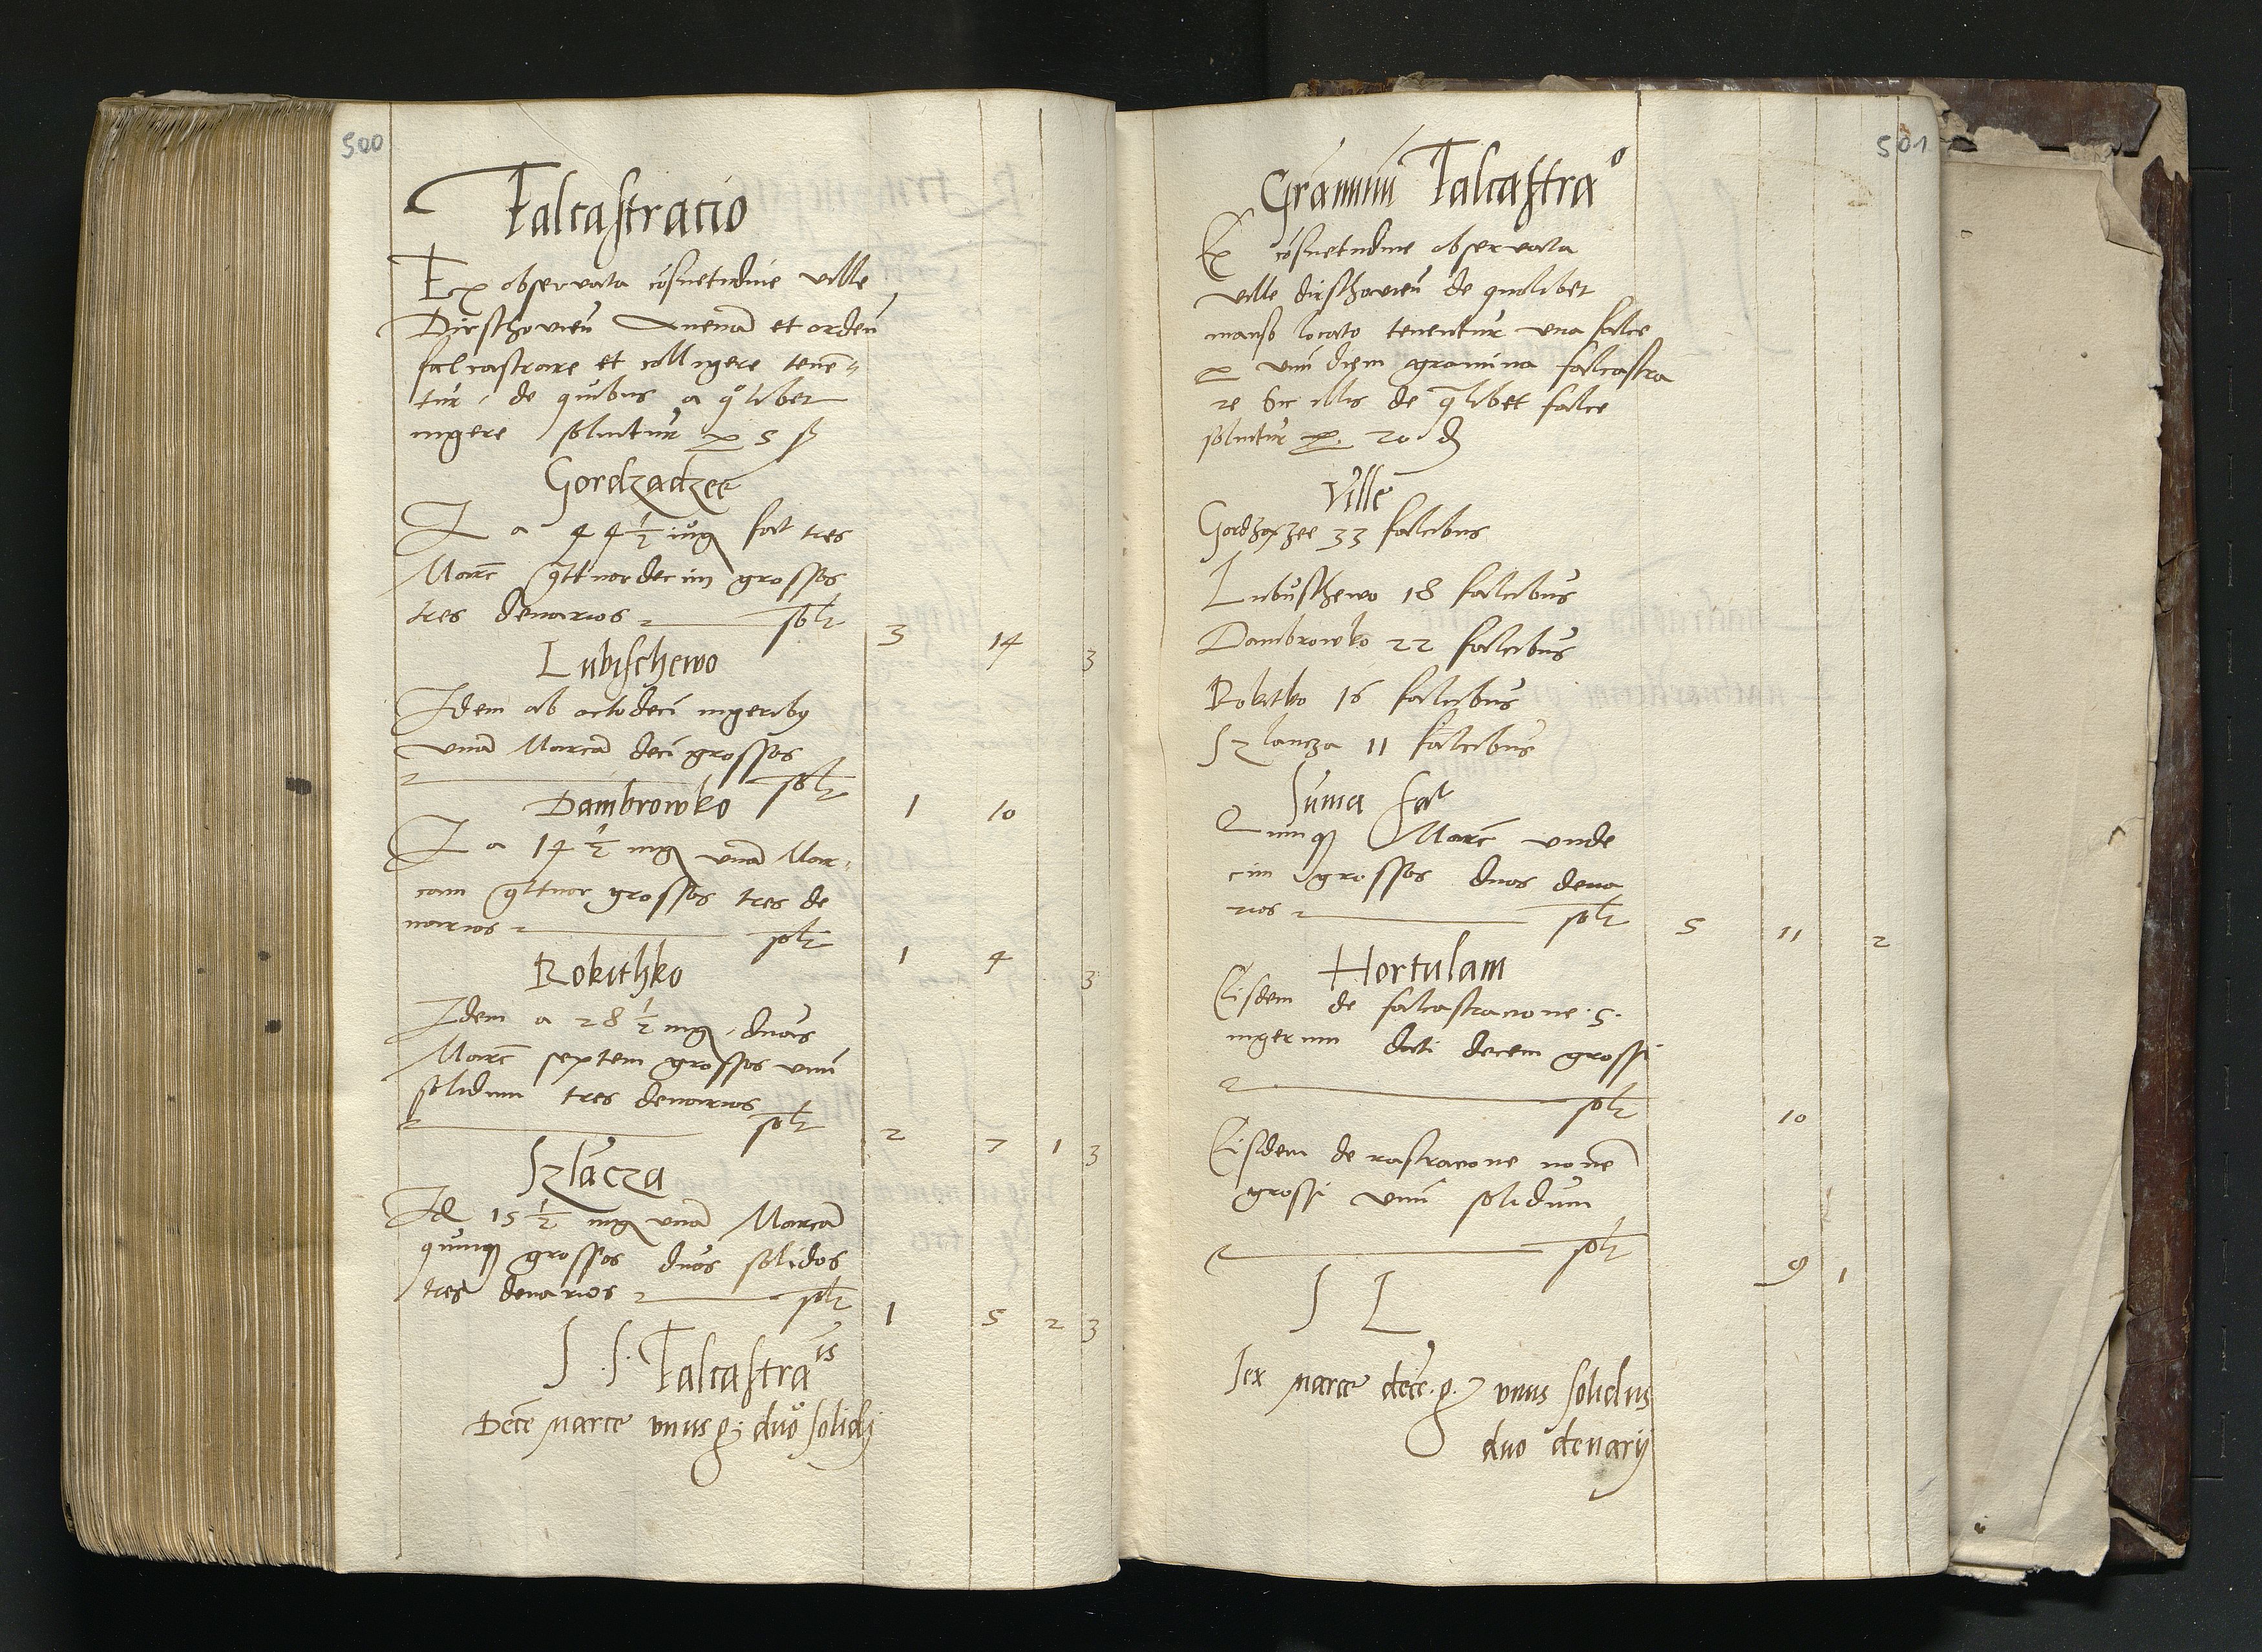 500
Falcastracio
Ex observata cōsuetudine ville
Dirschovieñ Avenā et ordeū
falcastrare et colligere tenē=
tur, de quibus a qͦlibet
iugere soluitur p 5 ß
Gordzadzee
I a 44 1/2 iug fat tres
Marc̄ qttuordecim grossos
tres denarios solt 3 14 3
Lubischewo
Idem ab octodecī iugeribꝰ
vnā Marcā decī grossos
solt 1 10
Dambrowko
I a 14 1/2 iug vnā Mar=
cam qttuor grossos tres de
narios solt 1 4 3
Rokithko
Idem a 28 1/2 iug duas
Marc̄ septem grossos vnū
solidum tres denarios
solt 2 7 1 3
Szlācza
Id 15 1/2 iug vnā Marcā
quinqꝫ grossos duos solidos
tres denarios solt 1 5 2 3
S S. Falcastraīs
Decē marce vnus g. duo solidj
501
Graminū Falcastraͦ
Ex cōsuetudine observata
ville dirschovieñ de quolibet
manso locato tenentur vna falce
p vnū diem gramina falcastra
re Sic illis de qlibet falce
soluitur p. 20 ₰
Ville
Gordzaczee 33 falcibus
Lubuschewo 18 falcibus
Dambrowko 22 falcibus
Rokitko 16 falcibus
Szlancza 11 falcibus
Suma fat
Quinqꝫ Marc̄ vnde
cim grossos duos dena
rios solt 5 11 2
Hortulani
Eisdem de falcastracione .5.
iugerum dati decem grossi
solt 10
Eisdem de rastracione novē
grossi vnū solidum
solt 9 1
S L
Sex marce decē .g. vnus solidus
duo denarij